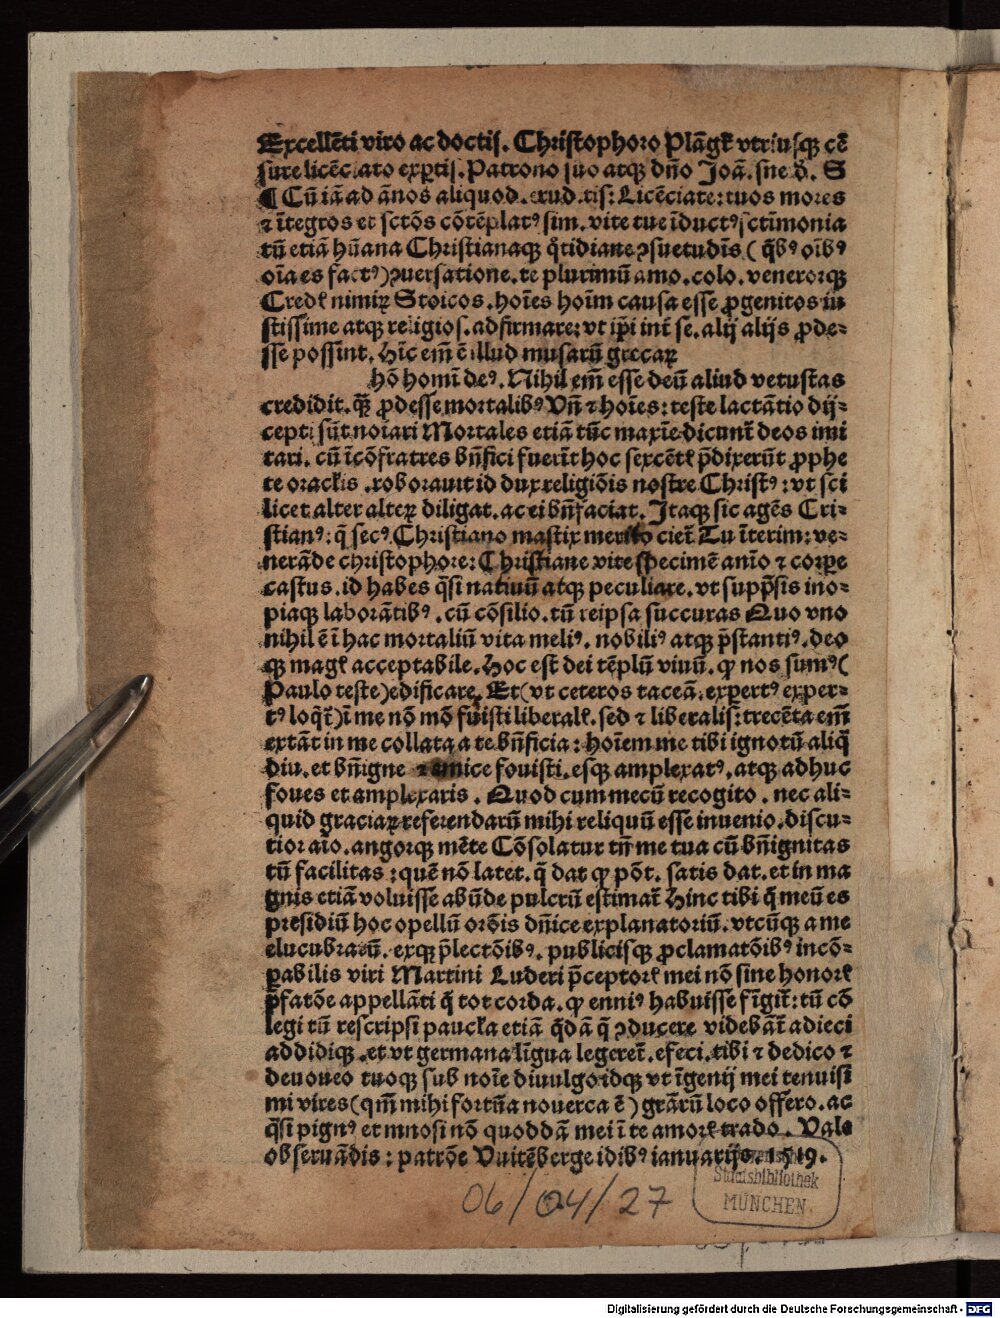 Excellẽti viro ac doctiſ. Chriſtophoro Plãgk vtriuſqꝫ cẽ
ſure licẽciato exꝑtiſ. Patrono ſuo atqꝫ dño Joã. ſne d̃. S
¶ Cũ iã ad ãnos aliquod. erud. tiſ: Licẽciate: tuos mores
⁊ ĩtegros et ſctõs cõtẽplatꝰ ſim. vite tue ĩductꝰ ſctĩmonia
tũ etiã hũana Chriſtianaqꝫ q̃tidiane ꝯſuetudĩs ( q̃bꝰ oĩbꝰ
oĩa es factꝰ) ꝯuerſatione. te plurimũ amo. colo. venerorqꝫ
nimiꝝ Stoicos. hoĩes hoĩm cauſa eſſe ꝓgenitos iu
ſtiſſime atqꝫ religioſ. adfirmare: vt ip̃i int̃ ſe. alij alijs ꝓde⸗
ſſe poſſint. Hĩc em̃ ẽ illud muſarũ grecaꝝ
hõ homĩ deꝰ. Nihil em̃ eſſe deũ aliud vetuſtas
credidit. q̃ꝫ ꝓdeſſe mortalibꝰ Vñ ⁊ hoĩes: teſte lactãtio dij⸗
cepti ſũt noiari Mortales etiã tũc maxĩe dicunt̃ deos imi
tari. cũ ĩ cõfratres bñfici fuerĩt hoc ſexcẽt p̃dixerũt ꝓphe
te orackis . roborauit id dux religiõis noſtre Chriſtꝰ: vt ſci
licet alter alteꝝ diligat. ac ei bñfaciat. Itaqꝫ ſic agẽs Cri⸗
ſtianꝰ: q̃ ſecꝰ Chriſtiano maſtix merito ciet̃ Tu ĩterim: ve⸗
nerãde chriſtophore: Chriſtiane vite ſpecimẽ anĩo ⁊ corꝑe
caſtus. id habes q̃ſi natiuũ atqꝫ peculiare. vt ſupp̃ſis ino⸗
piaqꝫ laborãtibꝰ. cũ cõſilio. tũ reipſa ſuccuras Quo vno
nihil ẽ ĩ hac mortaliũ vita meliꝰ. nobiliꝰ atqꝫ p̃ſtantiꝰ. deo
qꝫ acceptabile. Hoc eſt dei tẽplũ viuũ. ꝙ nos ſumꝰ(
Paulo teſte) edificare. Et( vt ceteros taceã. expertꝰ exper⸗
tꝰ loq̃t̃) ĩ me nõ mõ fuiſti liberal. ſed ⁊ liberaliſ: trecẽta em̃
extãt in me collata a te bñficia: hoĩem me tibi ignotũ aliq̃
diu. et bñigne ⁊ amice fouiſti. eſqꝫ amplexatꝰ. atqꝫ adhuc
foues et amplexaris . Quod cum mecũ recogito . nec ali⸗
quid graciaꝝ referendarũ mihi reliquũ eſſe inuenio. diſcu⸗
tior aĩo. angorqꝫ mẽte Cõſolatur tñ me tua cũ bñignitas
tũ facilitas: quẽ nõ latet. q̃ dat ꝙ põt. ſatis dat. et in ma
gnis etiã voluiſſe abũde pulcrũ eſtimat̃ Hinc tibi q̃ meũ es
preſidiũ hoc opellũ orõis dñice explanatoriũ. vtcũqꝫ a me
elucubratũ. exqꝫ p̃lectõibꝰ. publiciſqꝫ ꝓclamatõibꝰ incõ⸗
ꝑabilis viri Martini Luderi p̃ceptor mei nõ ſine honor
p̃fatõe appellãti q̃ tot corda. ꝙ enniꝰ habuiſſe fĩgit̃: tũ cõ
legi tũ reſcripſi etiã q̃dã q̃ ꝯducere videbãt̃ adieci
addidiqꝫ. et vt germana lĩgua legeret̃. efeci. tibi ⁊ dedico ⁊
deuoueo tuoqꝫ ſub noĩe diuulgo: idqꝫ vt ĩgenij mei tenuiſi
mi vires( qm̃ mihi fortũa nouerca ẽ ) grãrũ loco offero. ac
q̃ſi pignꝰ et mnoſi nõ quoddã mei ĩ te amor trado. Vale
obſeruãdis: patrõe Vuitẽberge idibꝰ ianuarijs. 1519.
06/04/27
Staatsbibliothek
MÜNCHEN
Digitalisierung gefördert durch die Deutsche Forschungsgemeinschaft - DFG